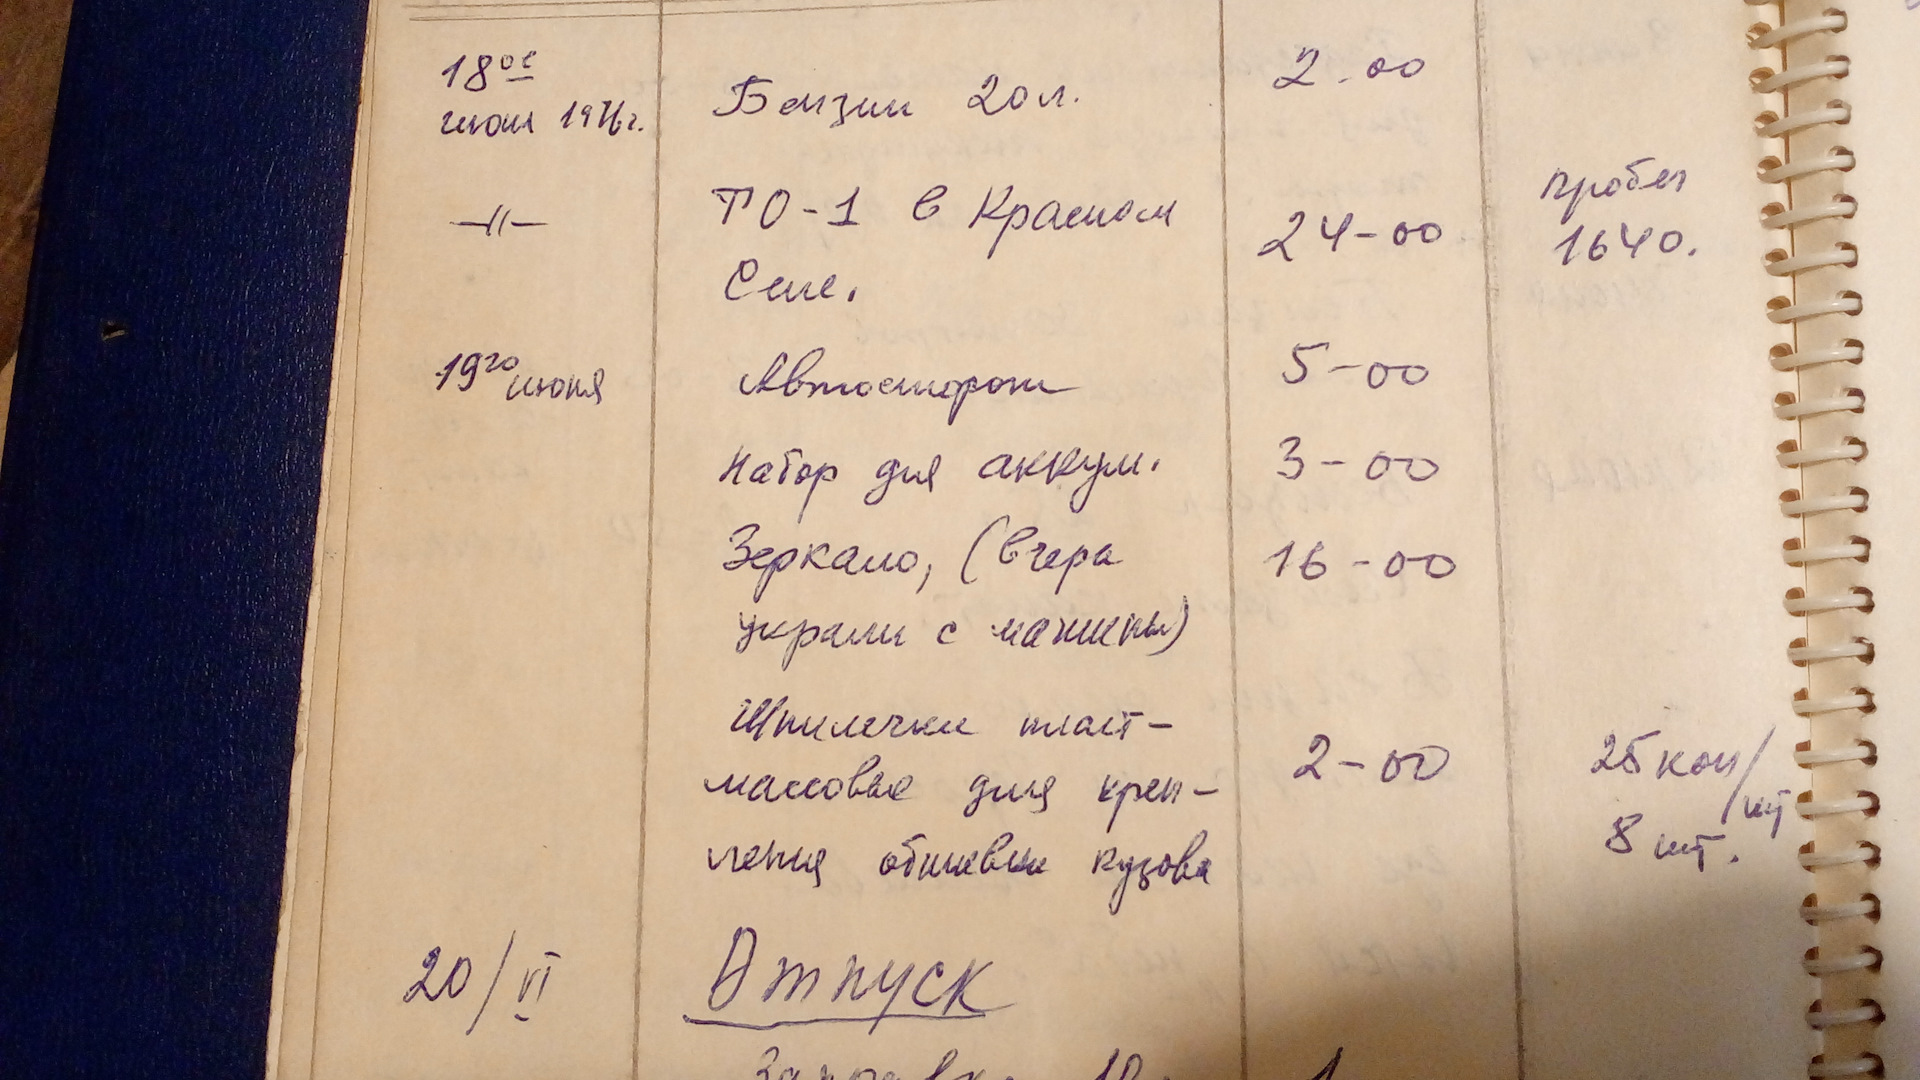 18ое
июня 1976г. Бензин 20л. 2.00
—〃— ТО-1 в Красном 24-00 пробег
Селе. 1640.
19го июня Автосторож 5-00
Набор для аккум. 3-00
Зеркало, (вчера 16-00
украли с машины)
Шпилечки пласт-
массовые для креп- 2-00 25 коп/шт
ления обшивки кузова 8 шт.
20/VI Отпуск
Заправка 10 1